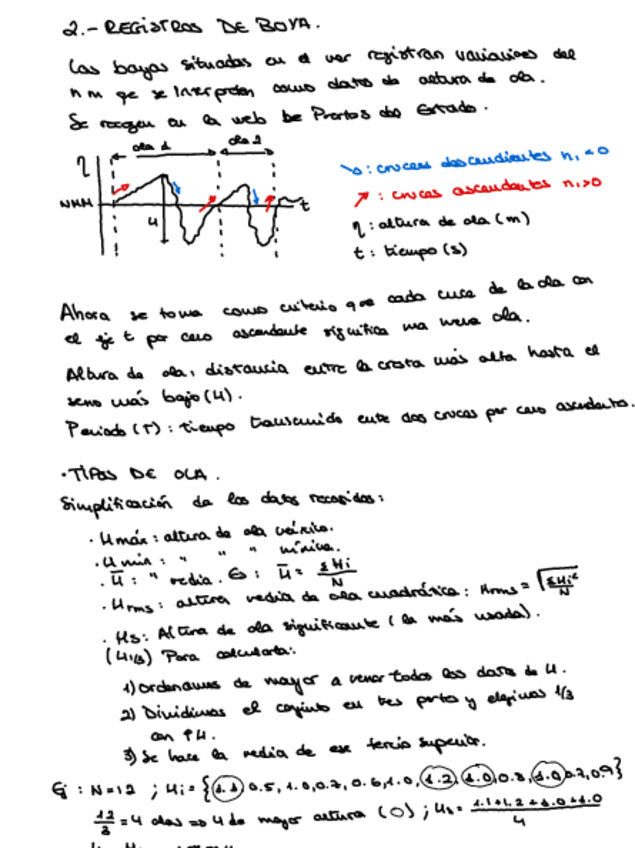 2.- REGISTROS DE BOYA.
Las boyas situadas en el mar registran variaciones del
n m qe se interpretan como datos de altura de ola.
Se recogen en la web de Puertos del Estado.
ola 1 ola 2
η
NMM
t
H
↘: cruces descendientes n, <0
↗: cruces ascendentes n,>0
η: altura de ola (m)
t: tiempo (s)
Ahora se toma como criterio que cada cruce de la ola con
el eje t por cero ascendente significa una nueva ola.
Altura de ola: distancia entre la cresta más alta hasta el
seno más bajo (H).
Periodo (T): tiempo transcurrido entre dos cruces por cero ascendentes.
· TIPOS DE OLA.
Simplificación de los datos recogidos:
· Hmáx: altura de ola máxima.
· Hmin: " " " mínima.
· H̅: " media. Es: H̅ = ΣHi/N
· Hrms: altura media de ola cuadrática: Hrms = √(ΣHi²/N)
· Hs: Altura de ola significante (la más usada).
(H1/3) Para calcularla:
1) Ordenamos de mayor a menor todos los datos de H.
2) Dividimos el conjunto en tres partes y elegimos 1/3
con ↑H.
3) Se hace la media de ese tercio superior.
Ej: N=12 ; Hi = {1.1, 0.5, 1.0, 0.7, 0.6, 1.0, 1.2, 1.0, 0.8, 1.0, 0.7, 0.9}
12/3 = 4 olas => 4 de mayor altura (O) ; Hs = 1.1+1.2+1.0+1.0/4